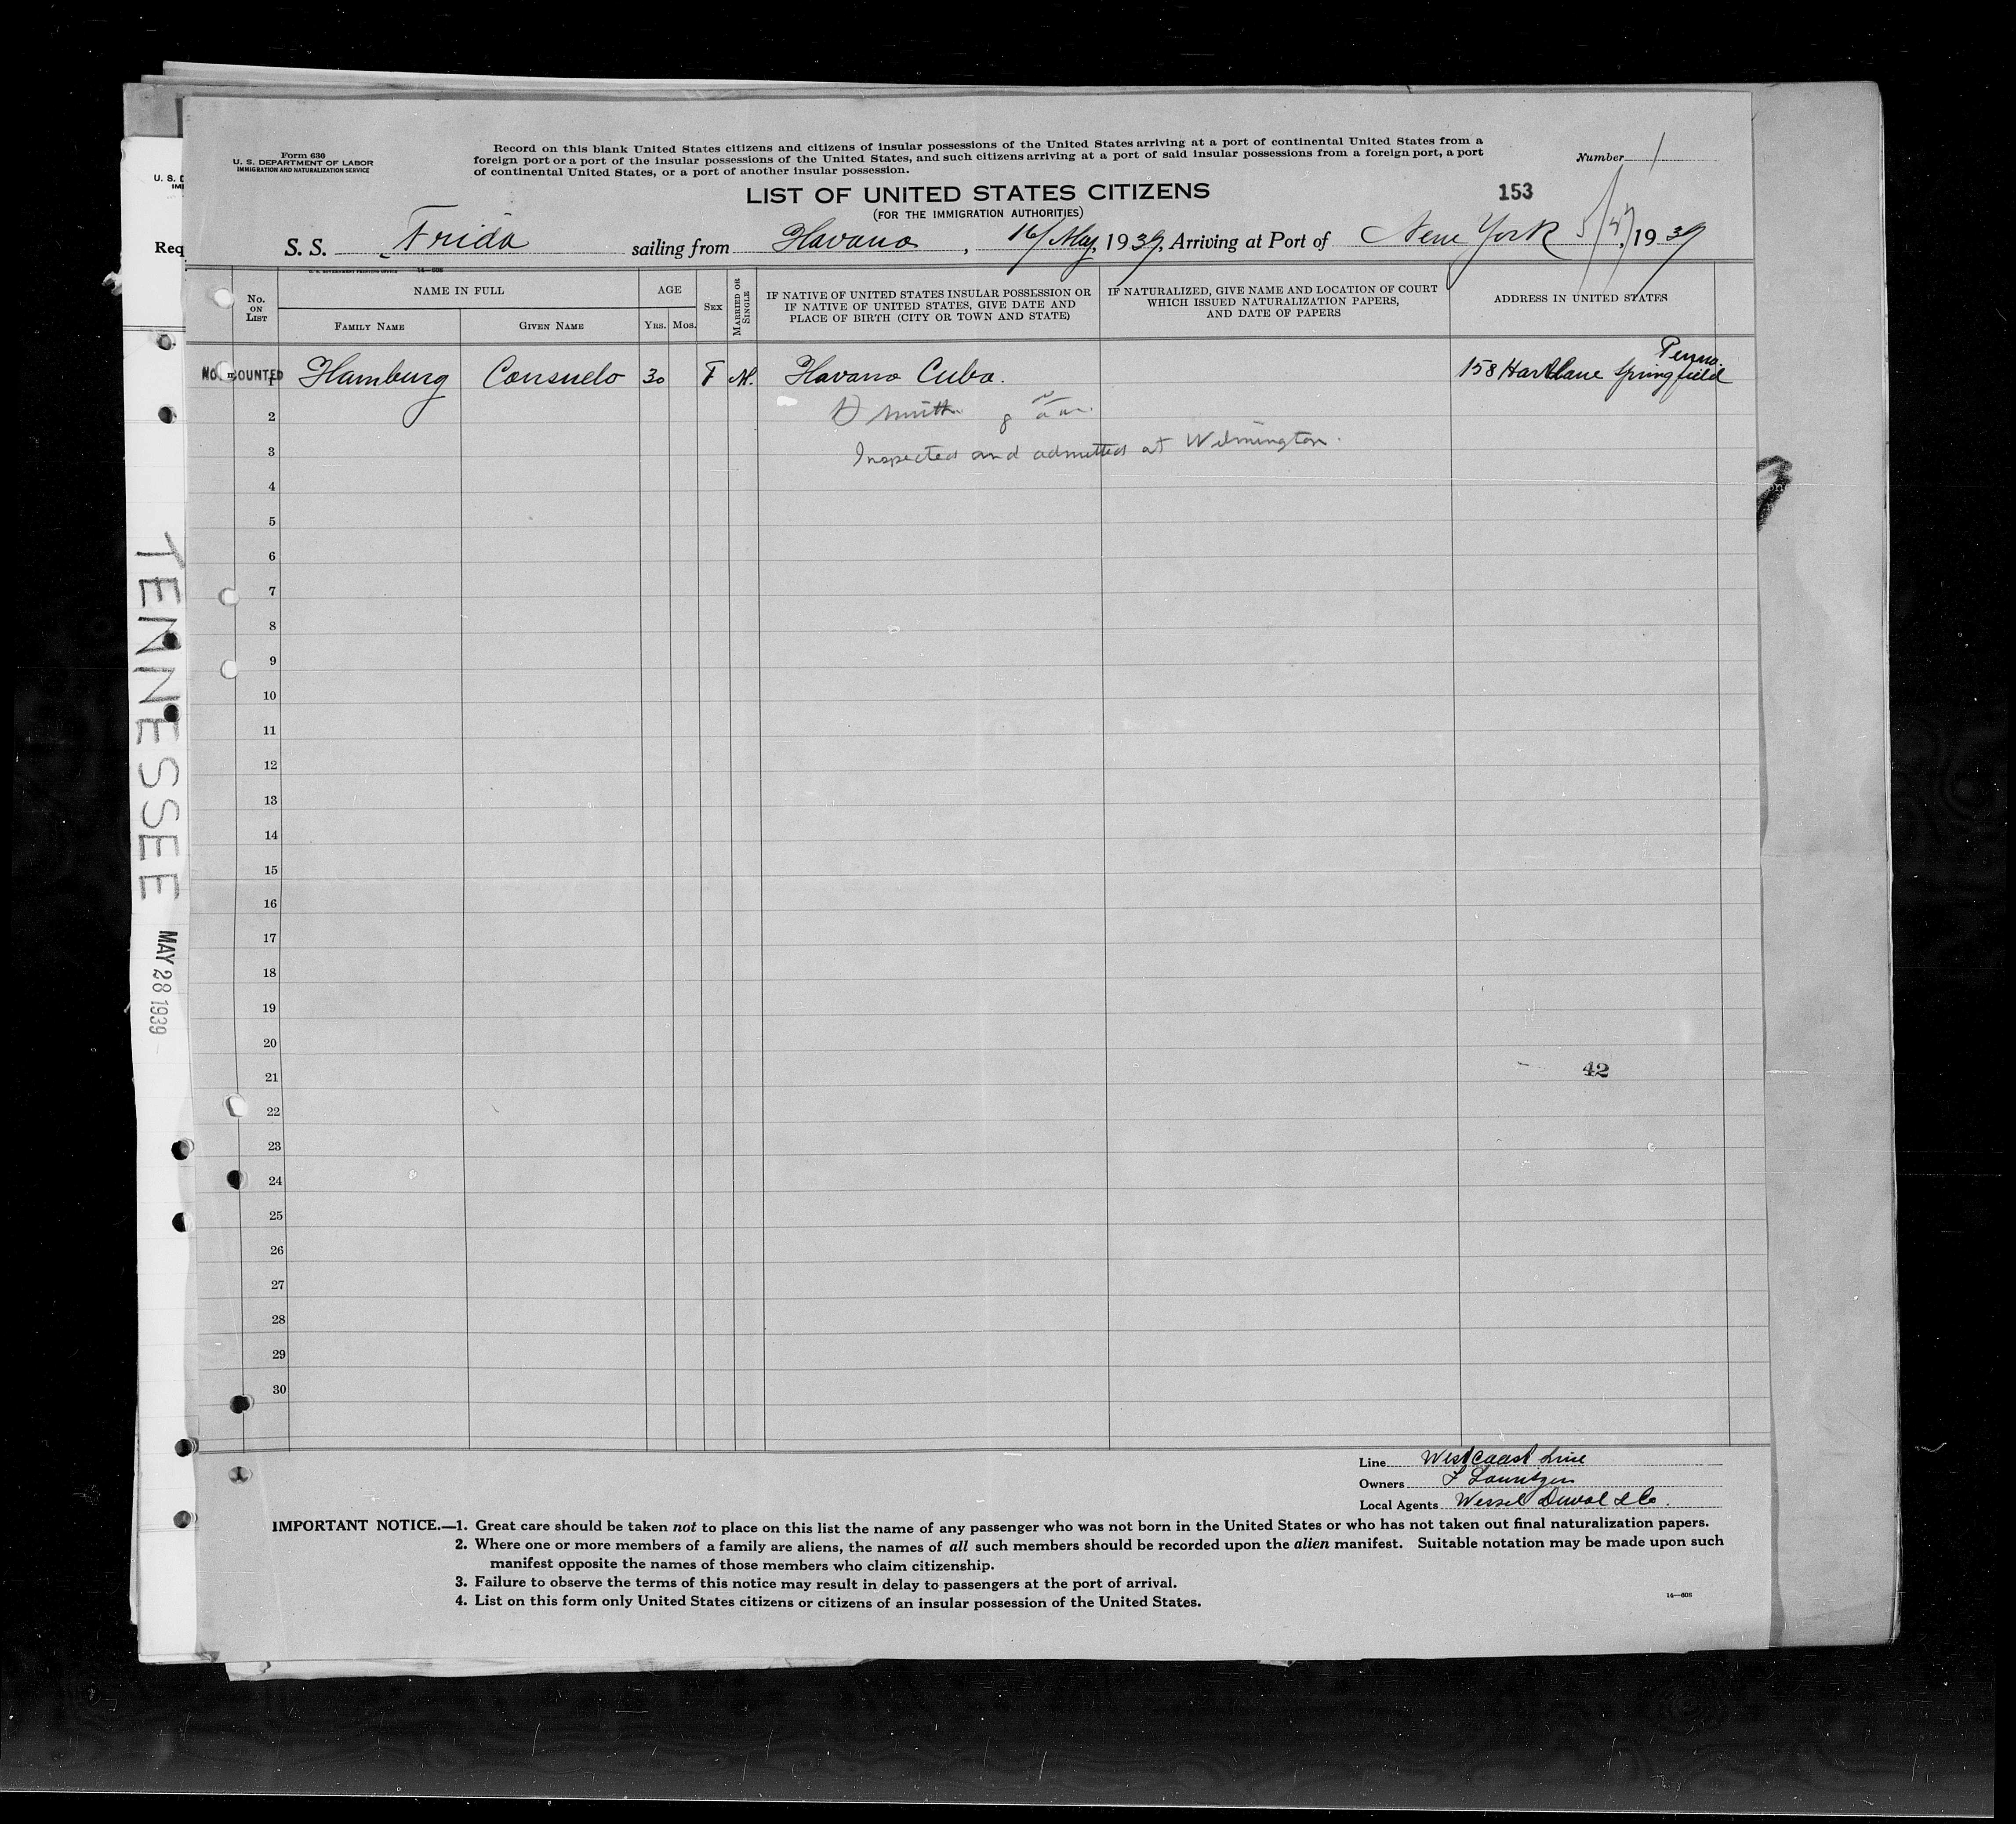 Form 630
U. S. DEPARTMENT OF LABOR
IMMIGRATION AND NATURALIZATION SERVICE
Record on this blank United States citizens and citizens of insular possessions of the United States arriving at a port of continental United States from a
foreign port or a port of the insular possessions of the United States, and such citizens arriving at a port of said insular possessions from a foreign port, a port
of continental United States, or a port of another insular possession.
Number 1
LIST OF UNITED STATES CITIZENS
(FOR THE IMMIGRATION AUTHORITIES)
153
S. S. Frida sailing from Havana, 16/May, 1939, Arriving at Port of New York 5/27, 1939
U. S. GOVERNMENT PRINTING OFFICE 14—608
No. ON LIST
NAME IN FULL
FAMILY NAME
GIVEN NAME
AGE
YRS. MOS.
SEX
MARRIED OR SINGLE
IF NATIVE OF UNITED STATES INSULAR POSSESSION OR
IF NATIVE OF UNITED STATES, GIVE DATE AND
PLACE OF BIRTH (CITY OR TOWN AND STATE)
IF NATURALIZED, GIVE NAME AND LOCATION OF COURT
WHICH ISSUED NATURALIZATION PAPERS,
AND DATE OF PAPERS
ADDRESS IN UNITED STATES
NOT COUNTED
1 Hamburg Consuelo 30 F M. Havana Cuba. 158 Hart Lane Springfield Penna.
2
3 Inspected and admitted at Wilmington.
4
5
6
7
8
9
10
11
12
13
14
15
16
17
18
19
20
21 42
22
23
24
25
26
27
28
29
30
Line West Coast Line
Owners J Lauritzen
Local Agents Wessel Duval & Co.
IMPORTANT NOTICE.—1. Great care should be taken not to place on this list the name of any passenger who was not born in the United States or who has not taken out final naturalization papers.
2. Where one or more members of a family are aliens, the names of all such members should be recorded upon the alien manifest. Suitable notation may be made upon such
manifest opposite the names of those members who claim citizenship.
3. Failure to observe the terms of this notice may result in delay to passengers at the port of arrival.
4. List on this form only United States citizens or citizens of an insular possession of the United States.
14—608
U. S. D
IMI
Req
TENNESSEE
MAY 28 1939